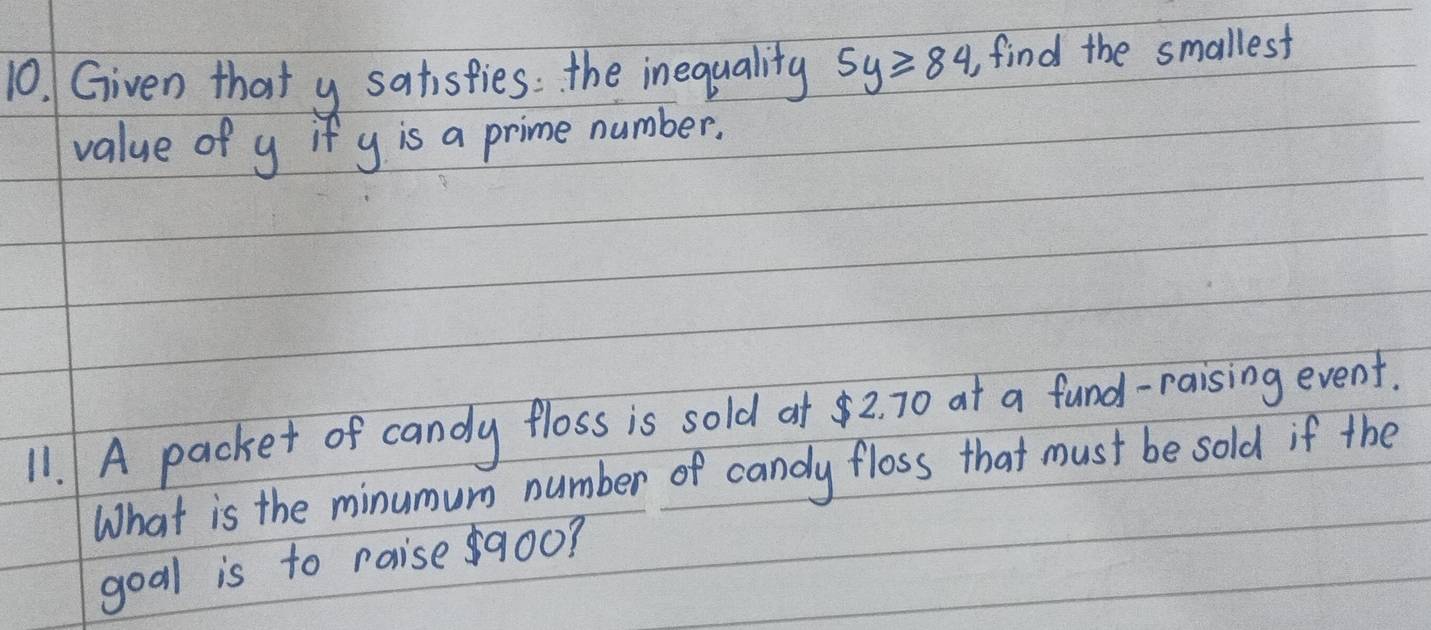 10. Given that y satisfies: the inequality 5y ≥ 84, find the smallest
value of y if y is a prime number.
11. A packet of candy floss is sold at $2.70 at a fund-raising event.
What is the minumum number of candy floss that must be sold if the
goal is to raise $900?